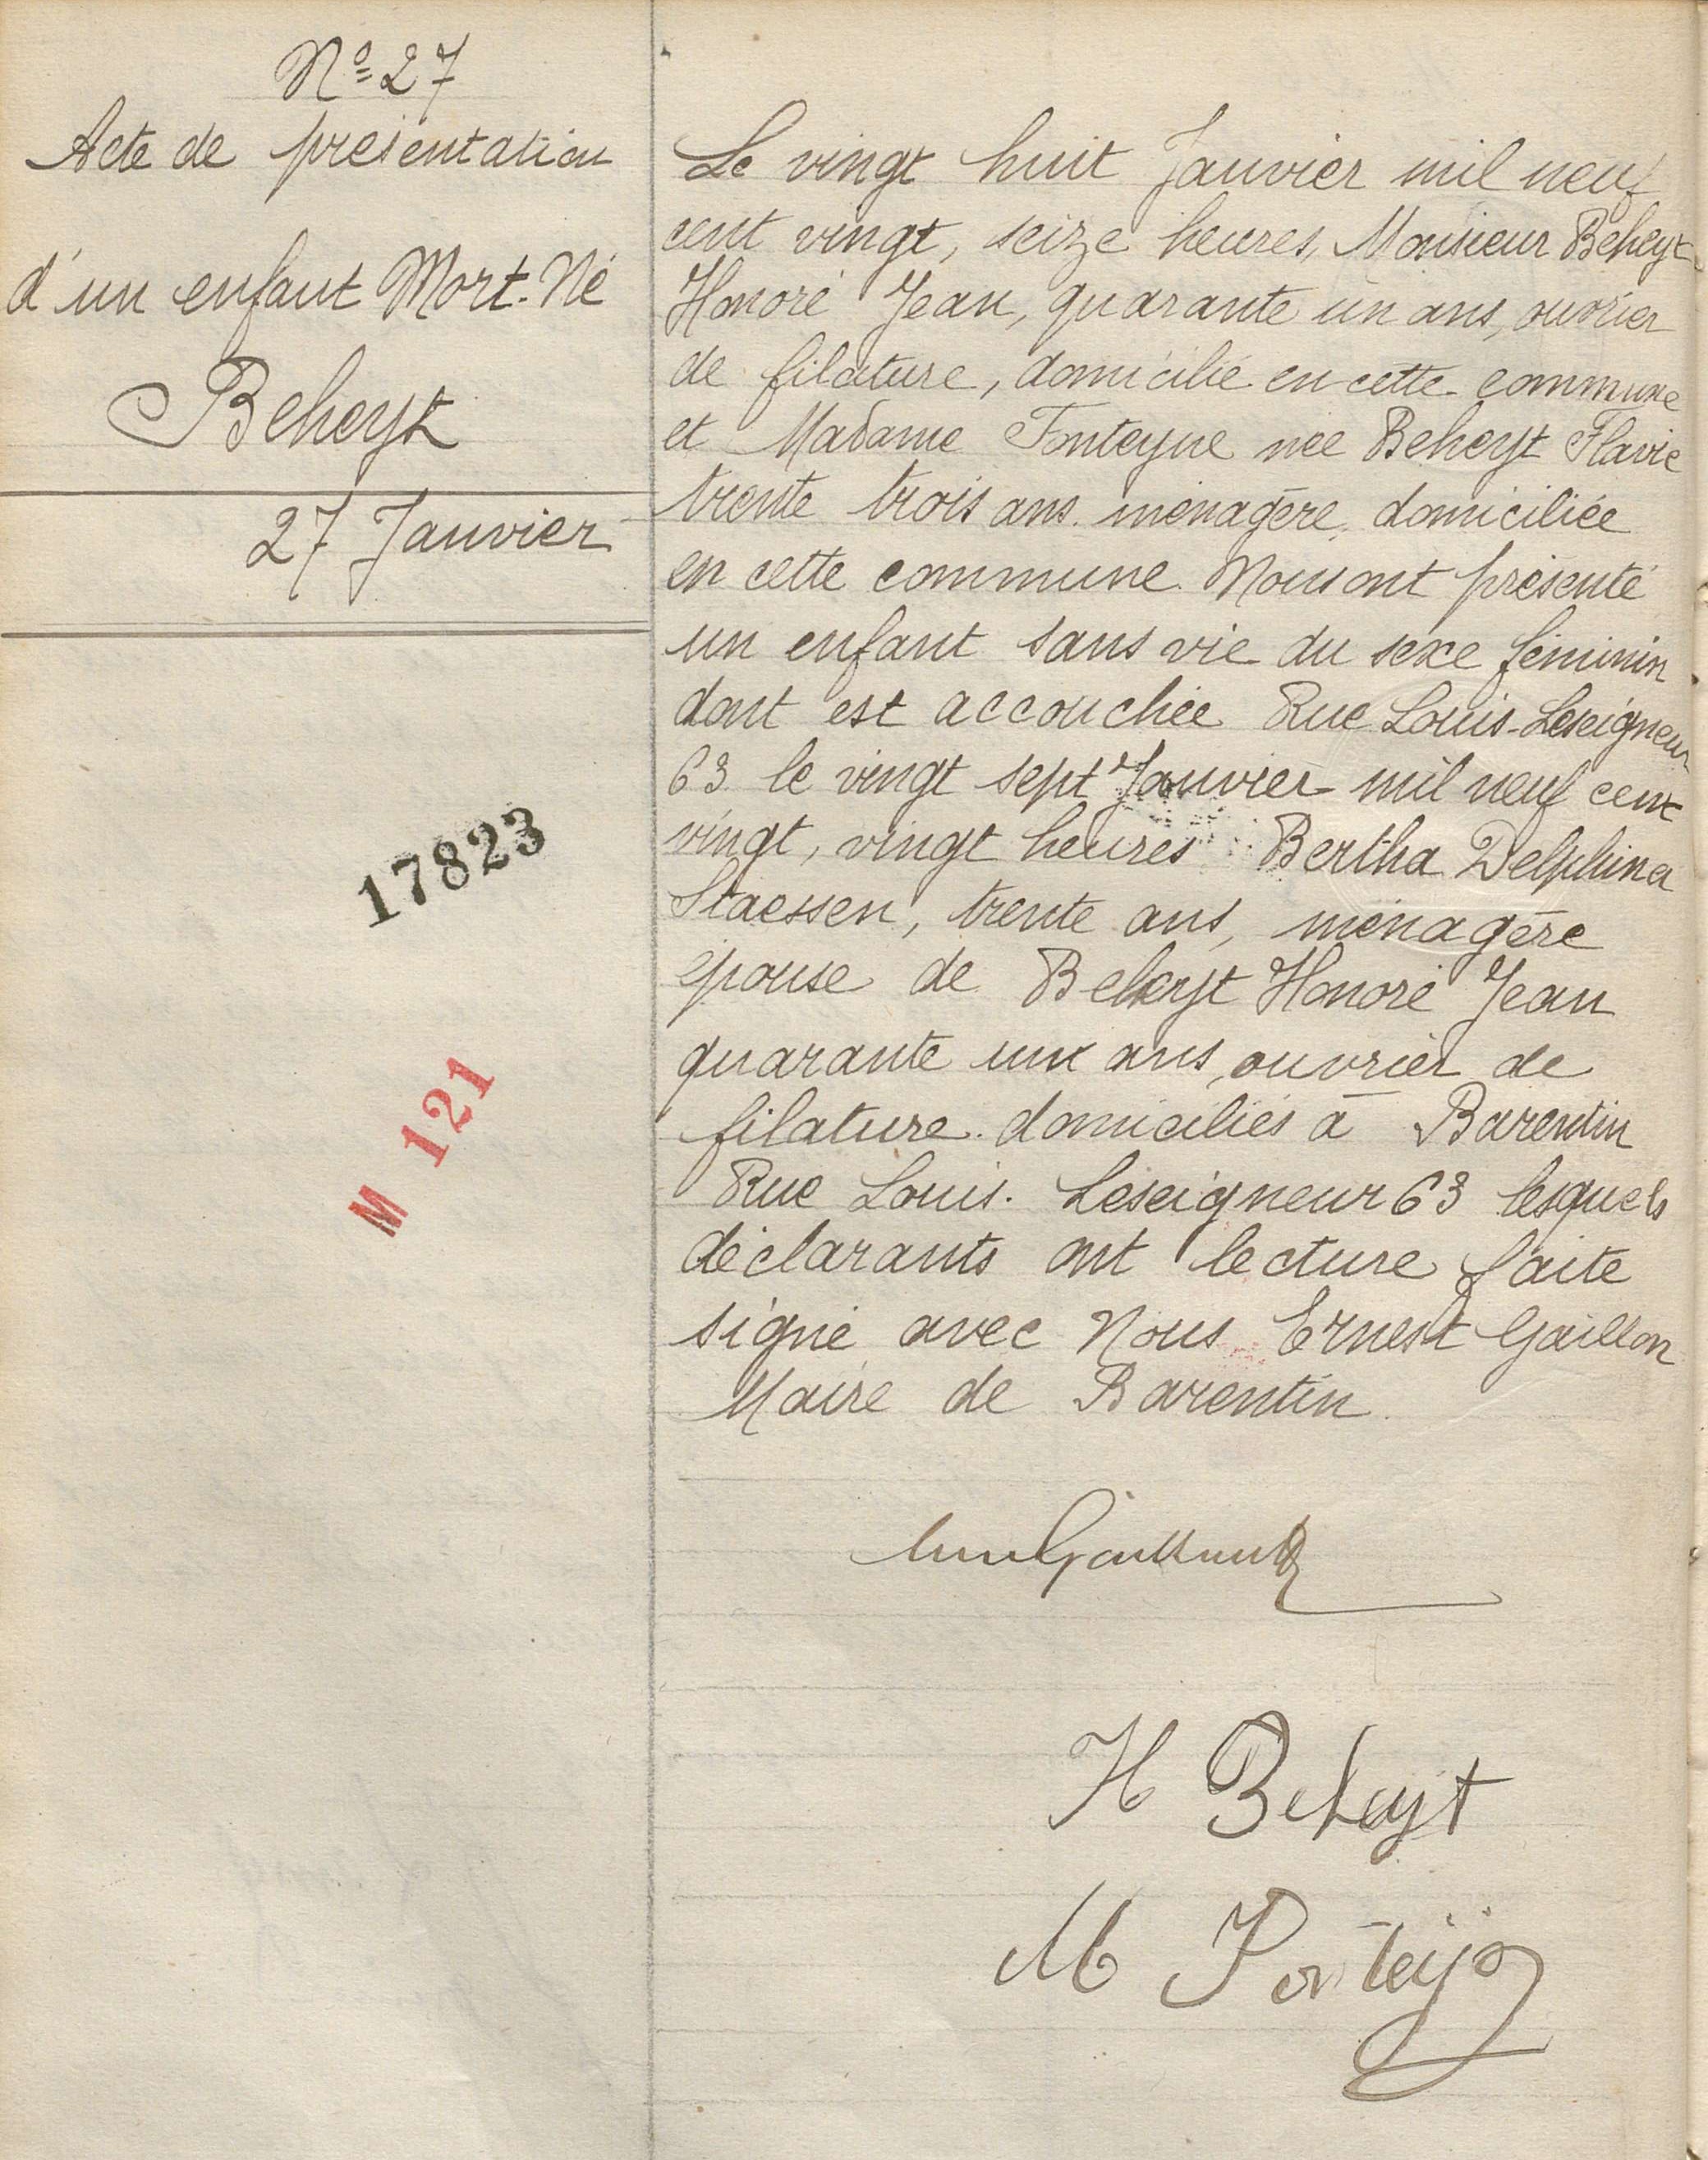 Nº 27
Acte de présentation
d'un enfant Mort-Né
Beheyt
27 Janvier
17823
M 121
Le vingt huit Janvier mil neuf
cent vingt, seize heures, Monsieur Beheyt
Honoré Jean, quarante un ans, ouvrier
de filature, domicilié en cette commune
et Madame Fonteyne née Beheyt Flavie
trente trois ans, ménagère, domiciliée
en cette commune Nous ont présenté
un enfant sans vie du sexe féminin
dont est accouchée Rue Louis-Leseigneur
63 le vingt sept Janvier mil neuf cent
vingt, vingt heures Bertha Delphina
Staessen, trente ans, ménagère
épouse de Beheyt Honoré Jean
quarante un ans, ouvrier de
filature domiciliés à Barentin
Rue Louis-Leseigneur 63 lesquels
déclarants ont lecture faite
signé avec Nous Ernest Gaillon
Maire de Barentin
H Beheyt
M